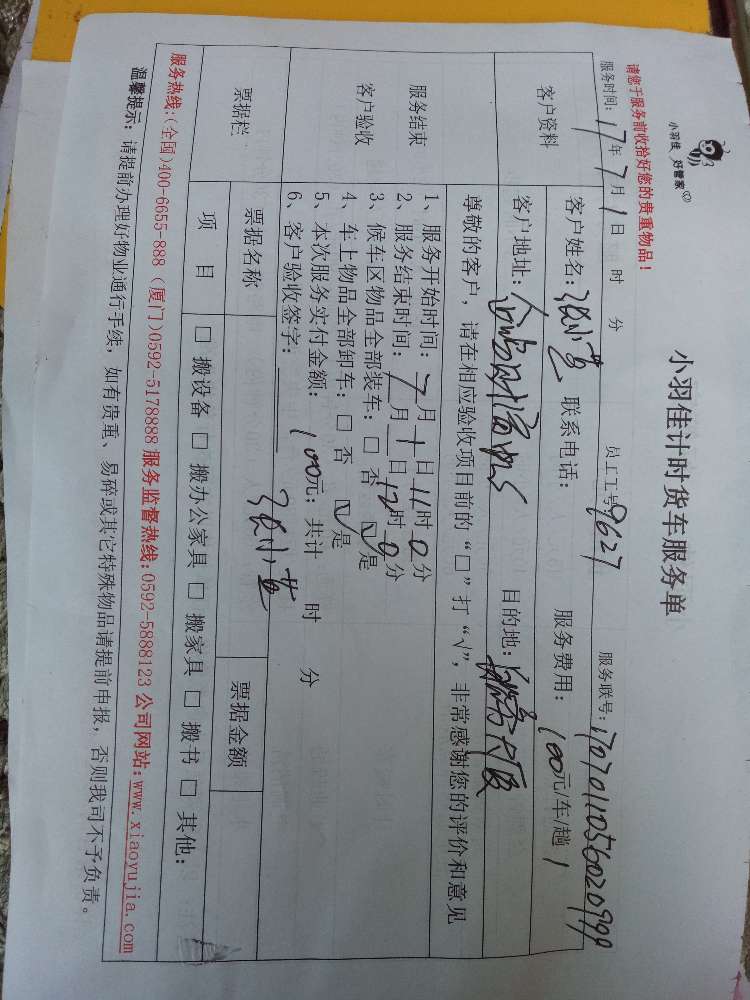 小羽佳 好管家
小羽佳计时货车服务单
请您于服务前收拾好您的贵重物品!
服务时间: 17年7月1日 时 分 员工工号9627 服务联号: 170701105602099
客户资料
客户姓名: 张小芸 联系电话: 服务费用: 100元/车/趟 1
客户地址: 目的地:
服务结束
客户验收
尊敬的客户, 请在相应验收项目前的“□”打“√”, 非常感谢您的评价和意见
1、服务开始时间: 7月1日11时0分
2、服务结束时间: 7月1日12时0分
3、候车区物品全部装车: □ 否 ☑ 是
4、车上物品全部卸车: □ 否 ☑ 是
5、本次服务实付金额: 100元; 共计 时 分
6、客户验收签字: 张小芸
票据栏
票据名称 票据金额
项 目 □ 搬设备 □ 搬办公家具 □ 搬家具 □ 搬书 □ 其他:
服务热线:(全国)400-6655-888 (厦门)0592-5178888 服务监督热线:0592-5888123 公司网站:www.xiaoyujia.com
温馨提示: 请提前办理好物业通行手续, 如有贵重、易碎或其它特殊物品请提前申报, 否则我司不予负责。